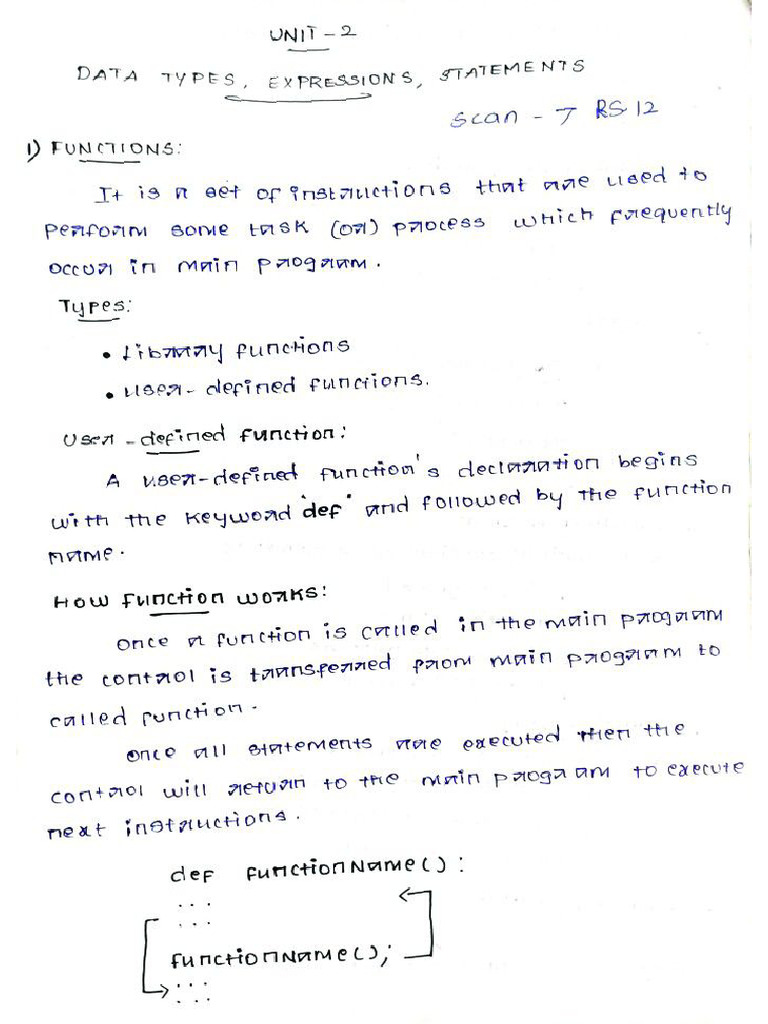 UNIT-2
DATA TYPES, EXPRESSIONS, STATEMENTS
Scan - 7 RS 12
1) FUNCTIONS:
It is a set of instructions that are used to
perform some task (or) process which frequently
occur in main program.
Types:
• Library functions
• user-defined functions.
User-defined function:
A user-defined function's declaration begins
with the keyword 'def' and followed by the function
name.
How function works:
once a function is called in the main program
the control is transferred from main program to
called function.
once all statements are executed then the
control will return to the main program to execute
next instructions.
def functionName():
...
...
functionName();
...
...